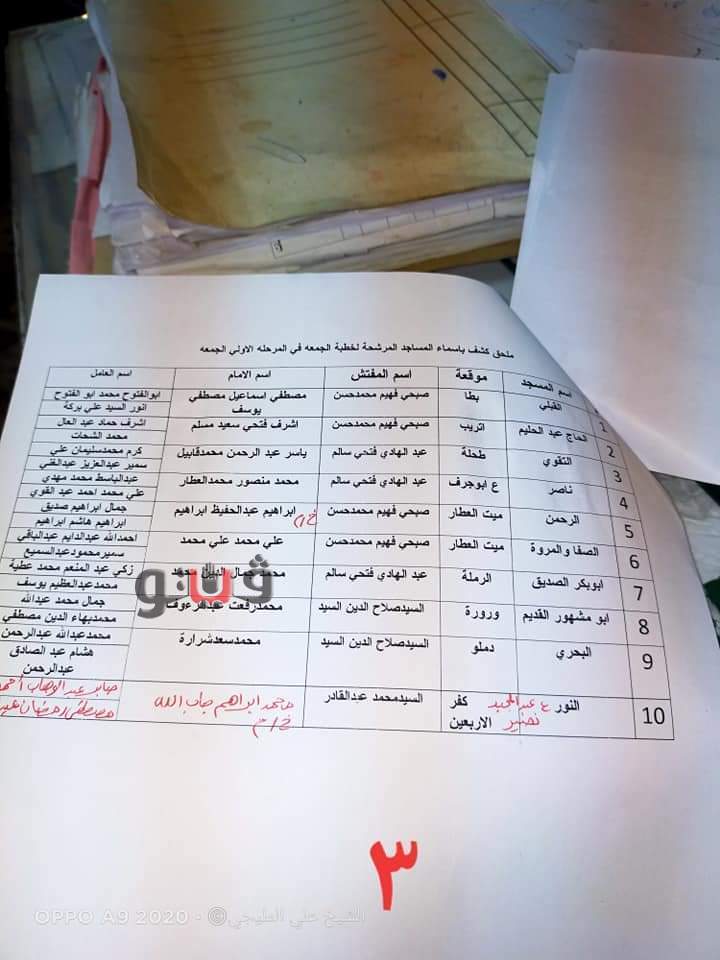 ملحق كشف باسماء المساجد المرشحة لخطبة الجمعه في المرحله الاولي الجمعه
اسم المسجد موقعة اسم المفتش اسم الامام اسم العامل
1 القبلي بطا صبحي فهيم محمدحسن مصطفي اسماعيل مصطفي يوسف ابوالفتوح محمد ابو الفتوح
انور السيد علي بركة
2 الحاج عبد الحليم اتريب صبحي فهيم محمدحسن اشرف فتحي سعيد مسلم اشرف حماد عبد العال
محمد الشحات
3 التقوي طحلة عبد الهادي فتحي سالم ياسر عبد الرحمن محمدقابيل كرم محمدسليمان علي
سمير عبدالعزيز عبدالغني
4 ناصر ع ابوجرف عبد الهادي فتحي سالم محمد منصور محمدالعطار عبدالباسط محمد مهدي
علي محمد احمد عبد القوي
5 الرحمن ميت العطار صبحي فهيم محمدحسن ابراهيم عبدالحفيظ ابراهيم جمال ابراهيم صديق
ابراهيم هاشم ابراهيم
6 الصفا والمروة ميت العطار صبحي فهيم محمدحسن علي محمد علي محمد احمدالله عبدالدايم عبدالباقي
سميرمحمودعبدالسميع
7 ابوبكر الصديق الرملة عبد الهادي فتحي سالم محمد جمال الدين محمد زكي عبد المنعم محمد عطية
محمدعبدالعظيم يوسف
8 ابو مشهور القديم ورورة السيدصلاح الدين السيد محمدرفعت عبدالرءوف جمال محمد عبدالله
محمدبهاء الدين مصطفي
9 البحري دملو السيدصلاح الدين السيد محمدسعدشرارة محمدعبدالله عبدالرحمن
هشام عبد الصادق
عبدالرحمن
10 النور ع عبد المجيد نصير كفر الاربعين السيدمحمد عبدالقادر محمد ابراهيم جاب الله صابر عبد الوهاب
مصطفى رمضان
ڤيتو
٣
OPPO A9 2020 · © الشيخ علي المليجي